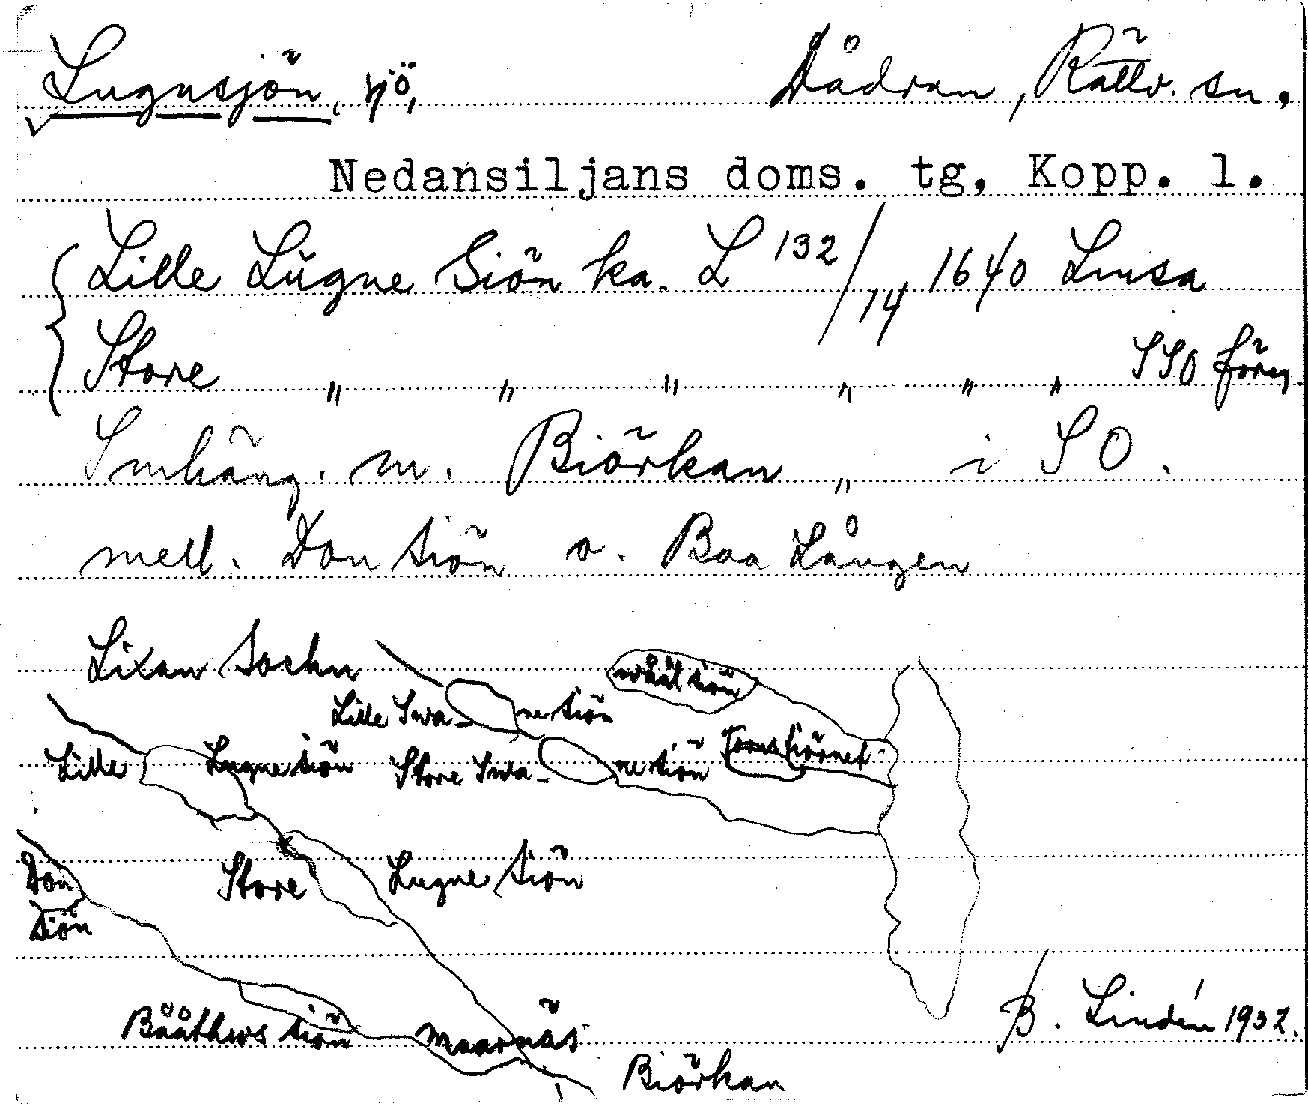 Lugnsjön, sjö, Dådran, Rättv. sn.
Nedansiljans doms. tg, Kopp. l.
Lille Lugne Siön ka. L 132/14 1640 Linsa
Store " " " " " " SSO föreg.
Smhäng. m. Biörkan " i SO.
mell. Don siön o. Baa Lången
Lixan Sochn
wååt siön
Lille Swa- ne siön
Lille Lugne siön Store Swa- ne siön tiörnet
Don Store Lugne Siön
siön
B. Lindén 1932.
Bååthws siön maarnäs
Biörkan